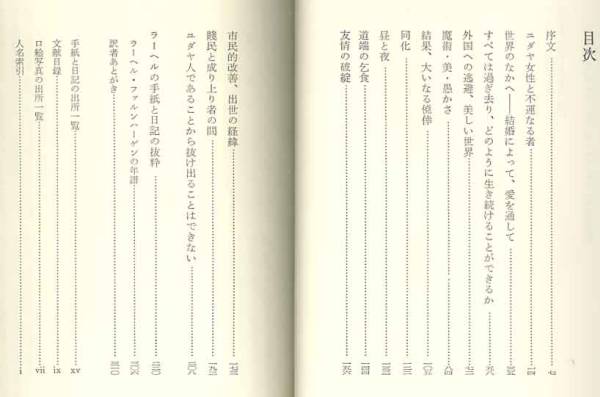 目次
序文
ユダヤ女性と不運なる者
世界のなかへ――結婚によって、愛を通して
すべては過ぎ去り、どのように生き続けることができるか
外国への逃避、美しい世界
魔術・美・愚かさ
結果、大いなる僥倖
同化
昼と夜
道端の乞食
友情の破綻
市民的改善、出世の経緯
賤民と成り上り者の間
ユダヤ人であることから抜け出ることはできない
ラーヘルの手紙と日記の抜粋
ラーヘル・ファルンハーゲンの年譜
訳者あとがき
手紙と日記の出所一覧 xv
文献目録 ix
口絵写真の出所一覧 vii
人名索引 i